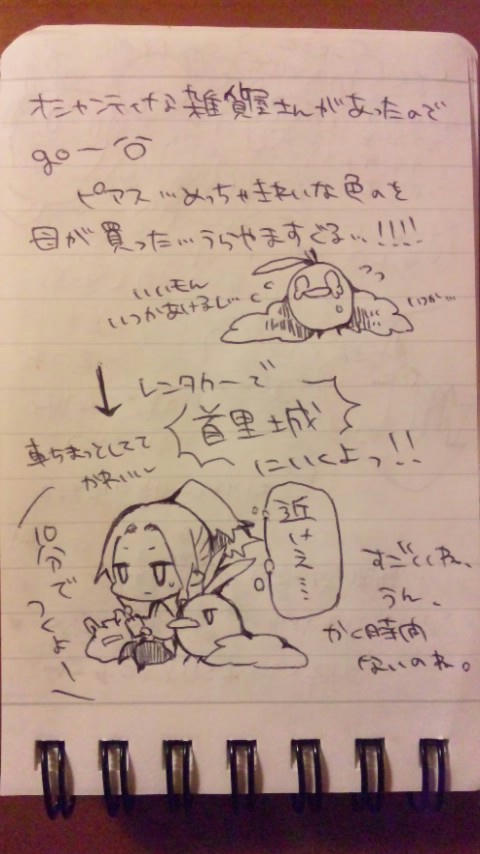 オシャンティな雑貨屋さんがあったので
goー
ピアス…めっちゃきれいな色のを
母が買った…うらやますぎる…!!!!
いいもん
いつかあけるし…
いつか…
↓ レンタカーで
首里城
にいくよっ!!
車ちまっとしてて
かわいい
10分で
つくよー
近けえ…
すごいね、
うん、
かく時間
ないのね。